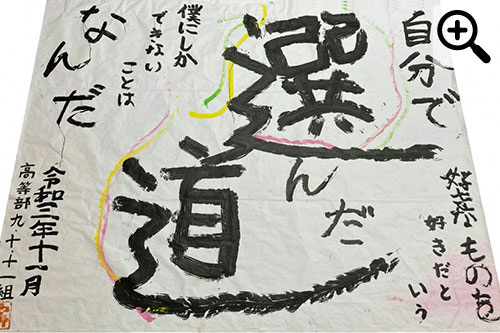 自分で
選んだ
道
好きなものを
好きだという
僕にしか
できない
ことは
なんだ
令和三年十一月
高等部九・十・十一組